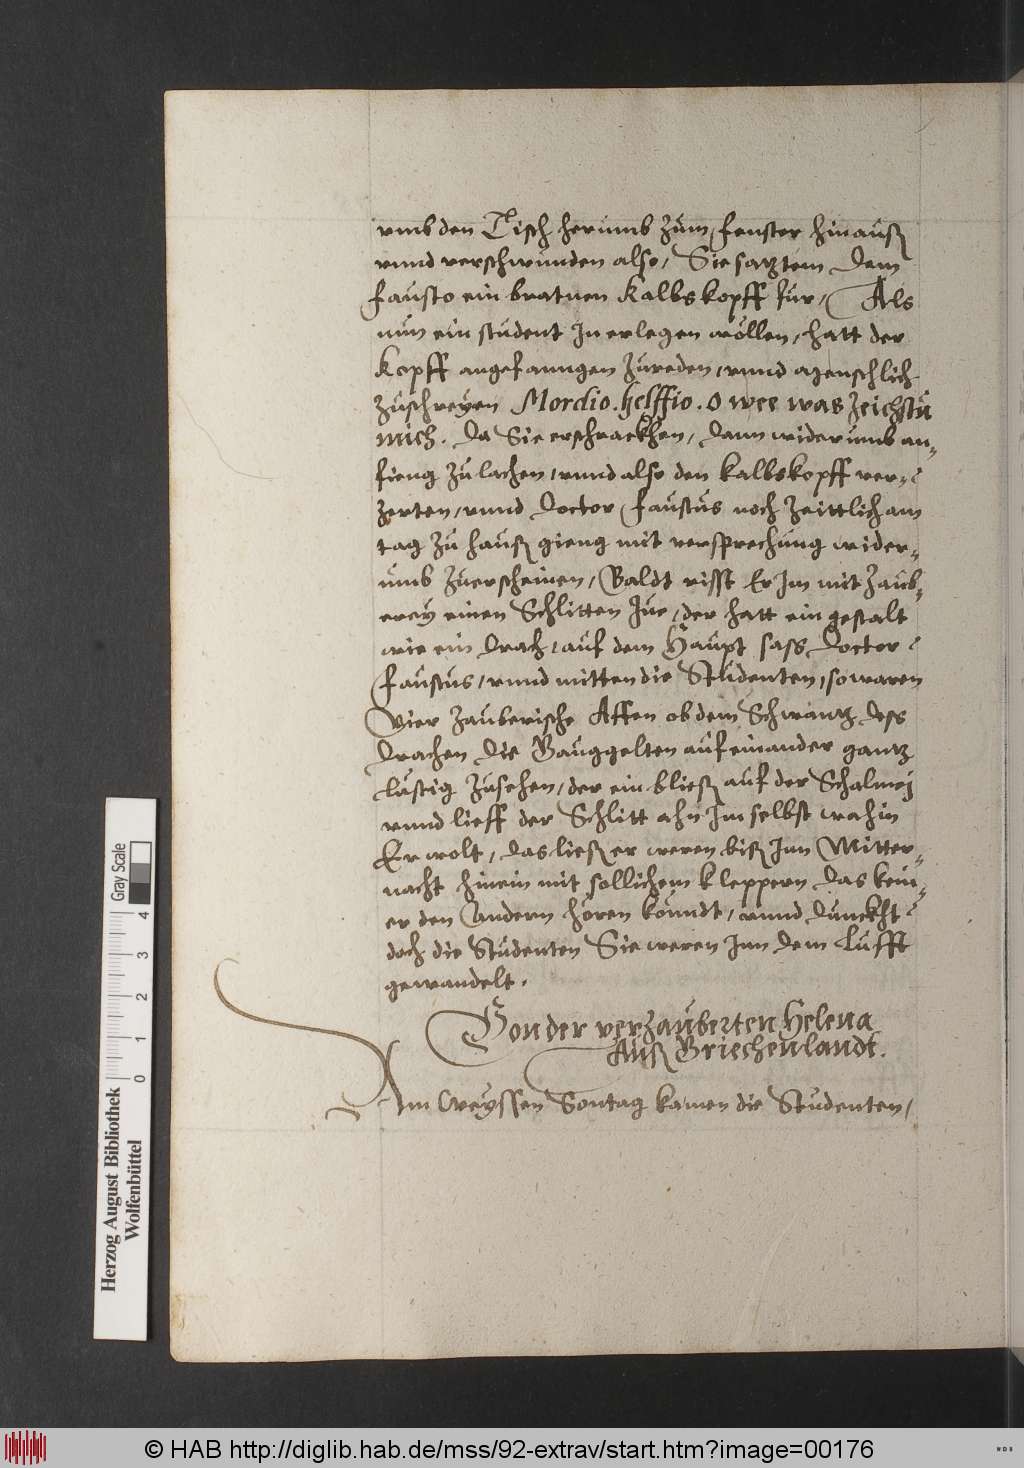 vmb den Tisch herumb zum fenster hinauß
vnnd verschwunden also, Sie satzten dem
Fausto ein bratnen Kalbskopff für, Als
nun ein student In erlegen wöllen, hatt der
Kopff angefanngen zureden, vnnd menschlich
zuschreyen Mordio. helffio. o wee was zeichstu
mich. Da Sie erschrackhen, dann widerumb an-
fieng zu lachen, vnnd also den kalbskopff ver-
zerten, vnnd Doctor Faustus noch zeittlich am
tag zu hauß gieng mit versprechung wider-
umb zuerscheinen, Baldt risst Er Im mit zaub-
erey einen Schlitten zue, der hatt ein gestalt
wie ein Drach, auf dem Haupt sass Doctor
Faustus, vnnd mitten die Studenten, so waren
Vier zauberische Affen ob dem Schwantz dess
Drachen die Gauggelten auf einander gantz
lustig zusehen, der ein bließ auf der Schalmej
vnnd lieff der Schlitt ahn Im selbst wahin
Er wolt, das ließ er weren biß Inn Mitter-
nacht hinein mit sollichem kleppern das kein-
er den Andern hören könndt, vnnd dunckht
doch die Studenten Sie weren Inn dem Lufft
gewandelt.
Von der verzauberten Helena
Auß Griechenlandt.
Am Weyssen Sontag kamen die Studenten,
Herzog August Bibliothek
Wolfenbüttel
0 1 2 3 4
Gray Scale
© HAB http://diglib.hab.de/mss/92-extrav/start.htm?image=00176